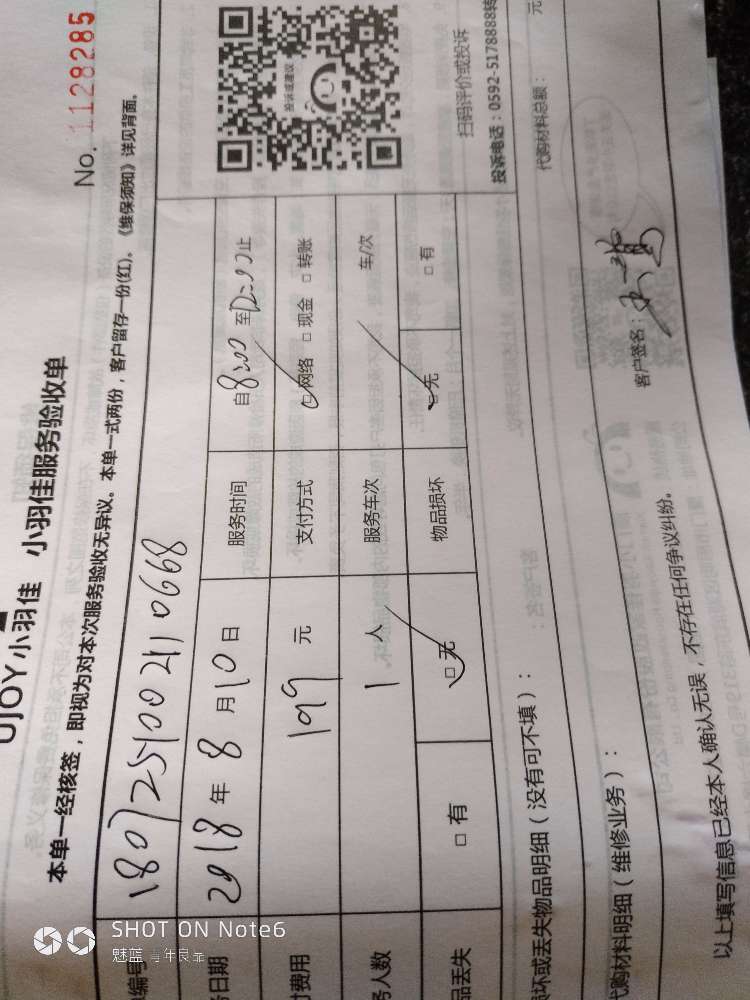 UJOY小羽佳 小羽佳服务验收单
No. 1128285
本单一经核签，即视为对本次服务验收无异议。本单一式两份，客户留存一份(红)。《维保须知》详见背面。
编号 1807251002110668
投诉或建议
日期 2018年8月10日 服务时间 自8:00至12:00止
费用 199元 支付方式 网络 现金 转账
人数 1人 服务车次 车/次
品丢失 有 无 物品损坏 无 有
扫码评价或投诉
投诉电话：0592-5178888转
坏或丢失物品明细（没有可不填）：
代购材料总额： 元
代购材料明细（维修业务）：
客户签名：
以上填写信息已经本人确认无误，不存在任何争议纠纷。
SHOT ON Note6
魅蓝 青年良品